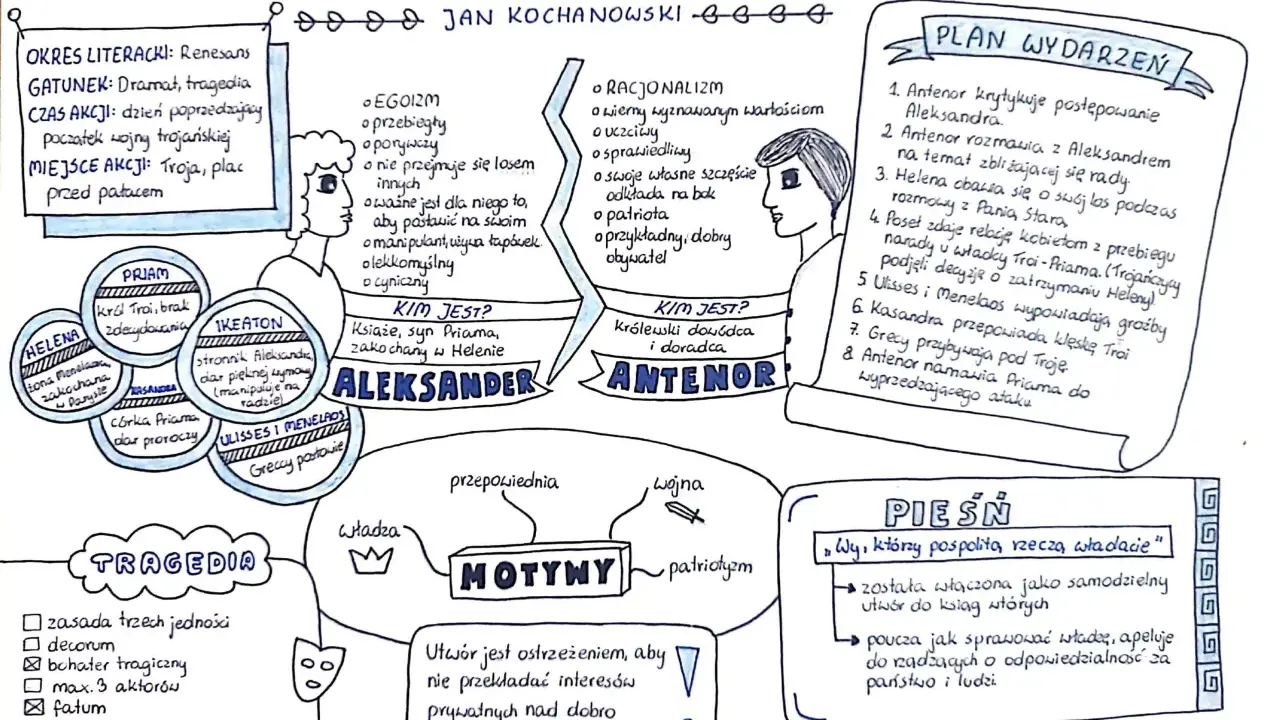 JAN KOCHANOWSKI
OKRES LITERACKI: Renesans
GATUNEK: Dramat, tragedia
CZAS AKCJI: dzień poprzedzający
początek wojny trojańskiej
MIEJSCE AKCJI: Troja, plac
przed pałacem
PRIAM
król Troi, brak
zdecydowania
HELENA
żona Menelaosa,
zakochana
w Parysie
IKEATON
stronnik Aleksandra,
dar pięknej wymowy
(manipuluje na
radzie)
KASANDRA
córka Priama,
dar proroczy
ULISSES I MENELAOS
Greccy posłowie
o EGOIZM
o przebiegły
o porywczy
o nie przejmuje się losem
innych
o ważne jest dla niego to,
aby postawić na swoim
o manipulant, używa łapówek
o lekkomyślny
o cyniczny
KIM JEST?
Książe, syn Priama,
zakochany w Helenie
ALEKSANDER
o RACJONALIZM
o wierny wyznawanym wartościom
o uczciwy
o sprawiedliwy
o swoje własne szczęście
odkłada na bok
o patriota
o przykładny, dobry
obywatel
KIM JEST?
Królewski dowódca
i doradca
ANTENOR
PLAN WYDARZEŃ
1. Antenor krytykuje postępowanie
Aleksandra.
2 Antenor rozmawia z Aleksandrem
na temat zbliżającej się rady.
3. Helena obawia się o swój los podczas
rozmowy z Panią Starą.
4. Poseł zdaje relację kobietom z przebiegu
narady u władcy Troi - Priama. (Trojańczycy
podjęli decyzję o zatrzymaniu Heleny).
5 Ulisses i Menelaos wypowiadają groźby
6. Kasandra przepowiada klęskę Troi
7. Grecy przybywają pod Troję.
8. Antenor namawia Priama do
wyprzedzającego ataku.
TRAGEDIA
zasada trzech jedności
decorum
bohater tragiczny
max. 3 aktorów
fatum
przepowiednia
wojna
władza
MOTYWY
patriotyzm
Utwór jest ostrzeżeniem, aby
nie przekładać interesów
prywatnych nad dobro
PIEŚŃ
„Wy, którzy pospolitą rzeczą władacie"
została włączona jako samodzielny
utwór do ksiąg wtórych
poucza jak sprawować władzę, apeluje
do rządzących o odpowiedzialność za
państwo i ludzi.